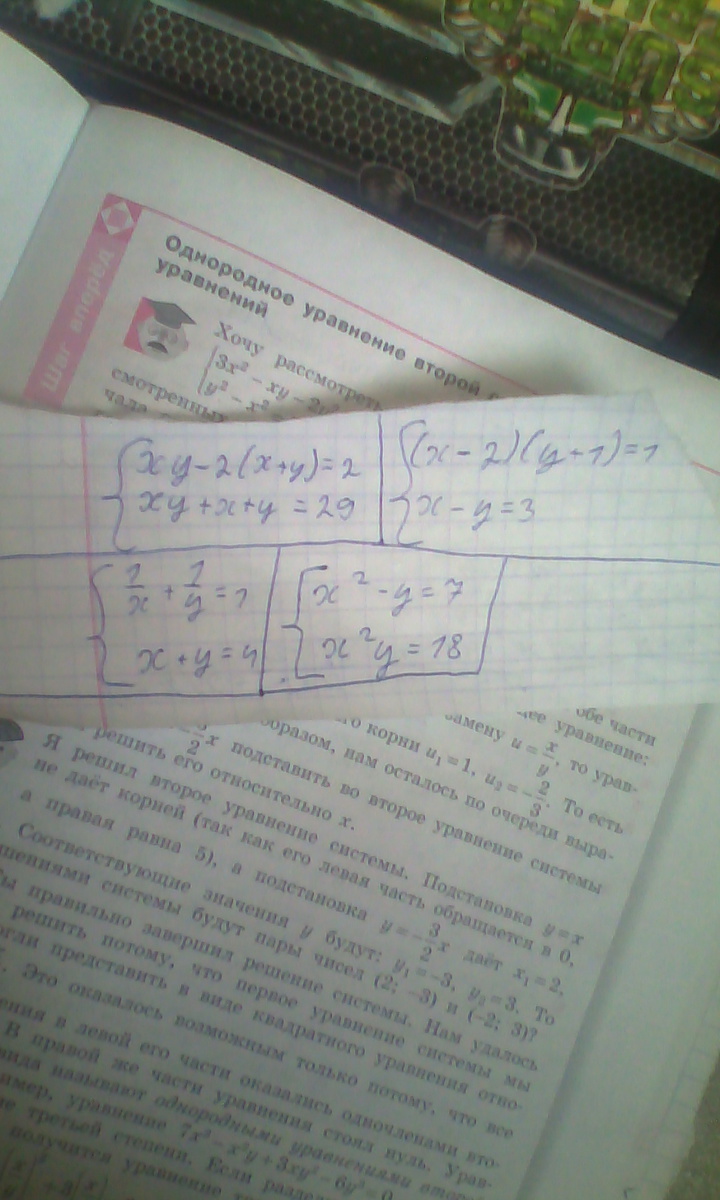 Шаг вперёд
Однородное уравнение второй
уравнений
Хочу рассмотреть
3x² - xy - 2y²
y² - x²
смотренных
xy - 2(x+y) = 2
xy + x + y = 29
(x - 2)(y + 1) = 1
x - y = 3
1/x + 1/y = 1
x + y = 4
x² - y = 7
x²y = 18
обе части
уравнение:
замену u = x/y, то урав-
корни u₁ = 1, u₂ = -2/3. То есть
образом, нам осталось по очереди выра-
x подставить во второе уравнение системы
решить его относительно x.
Я решил второе уравнение системы. Подстановка y = x
не даёт корней (так как его левая часть обращается в 0,
а правая равна 5), а подстановка y = -3/2x даёт x₁ = 2,
Соответствующие значения y будут: y₁ = -3, y₂ = 3. То
шениями системы будут пары чисел (2; -3) и (-2; 3)?
ы правильно завершил решение системы. Нам удалось
решить потому, что первое уравнение системы мы
огли представить в виде квадратного уравнения отно-
Это оказалось возможным только потому, что все
ения в левой его части оказались одночленами вто-
В правой же части уравнения стоял нуль. Урав-
вида называют однородными уравнениями второй
имер, уравнение 7x³ - x²y + 3xy² - 6y³ = 0
ие третьей степени. Если раздел
получится уравнение